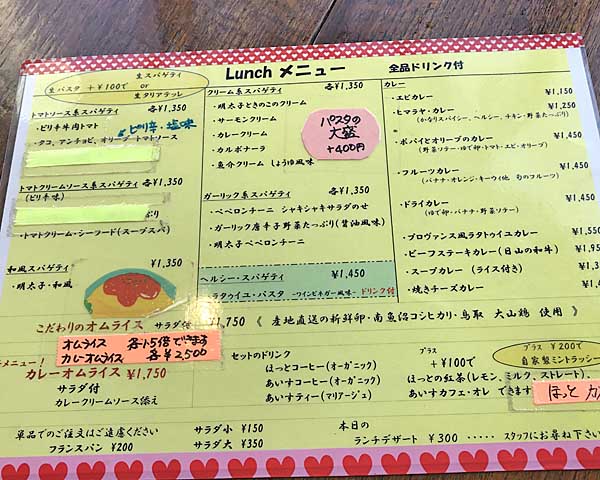 Lunch メニュー
全品ドリンク付
生パスタ ＋¥100で 生スパゲティ or 生タリアテッレ
トマトソース系スパゲティ 各¥1,350
・ピリ辛牛肉トマト
ピリ辛・塩味
・タコ、アンチョビ、オリーブ・トマトソース
トマトクリームソース系スパゲティ 各¥1,350
(ピリ辛味)
・トマトクリーム・シーフード(スープスパ)
和風スパゲティ ¥1,350
・明太子・和風
クリーム系スパゲティ 各¥1,350
・明太子ときのこのクリーム
・サーモンクリーム
・カレークリーム
・カルボナーラ
・魚介クリーム しょうゆ風味
パスタの
大盛
+400円
ガーリック系スパゲティ 各¥1,350
・ペペロンチーニ シャキシャキサラダのせ
・ガーリック唐辛子野菜たっぷり(醤油風味)
・明太子ペペロンチーニ
ヘルシー・スパゲティ ¥1,450
・ラタトゥイユ・パスタ -ワインビネガー風味- ドリンク付
カレー
・エビカレー ¥1,150
・ヒマラヤ・カレー ¥1,250
(かなりスパイシー、ヘルシー、チキン・野菜たっぷり)
・ポパイとオリーブのカレー ¥1,450
(野菜ソテー・ゆで卵・トマト・エビ・オリーブ)
・フルーツカレー ¥1,450
(バナナ・オレンジ・キーウイ他 旬のフルーツ)
・ドライカレー ¥1,450
(ゆで卵・バナナ・野菜ソテー)
・プロヴァンス風ラタトゥイユカレー ¥1,550
・ビーフステーキカレー (白山の和牛)
・スープカレー (ライス付き)
・焼きチーズカレー
こだわりのオムライス サラダ付 ¥1,750 《 産地直送の新鮮卵・南魚沼コシヒカリ・鳥取 大山鶏 使用 》
オムライス 各1.5倍できます
カレーオムライス 各¥2,500
メニュー!
カレーオムライス ¥1,750
サラダ付
カレークリームソース添え
セットのドリンク
ほっとコーヒー(オーガニック)
あいすコーヒー(オーガニック)
あいすティー(マリアージュ)
プラス
＋¥100で
ほっとの紅茶(レモン、ミルク、ストレート)、
あいすカフェ・オレ できます
プラス ¥200で
自家製ミントラッシー
ほっと カ
単品でのご注文はご遠慮ください
フランスパン ¥200
サラダ 小 ¥150
サラダ 大 ¥350
本日の
ランチデザート ¥300 ‥‥‥ スタッフにお尋ね下さい